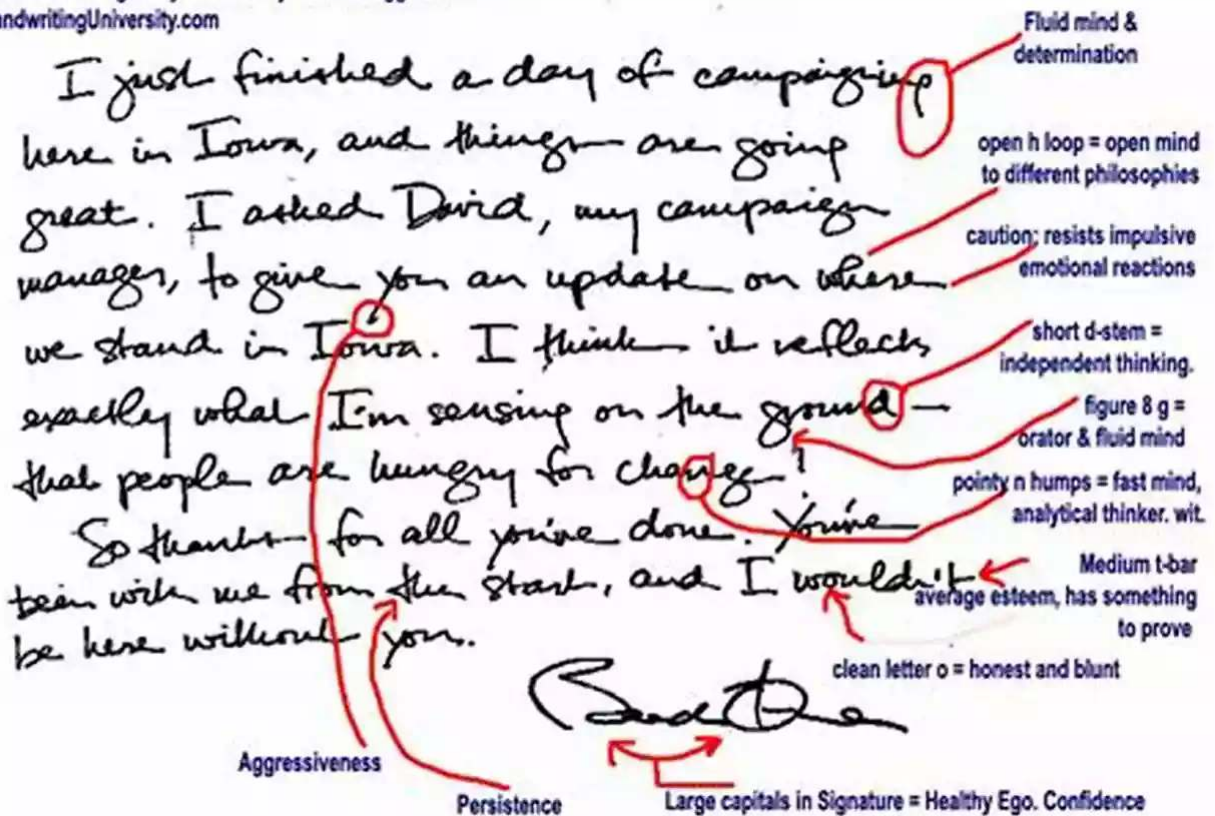 ndwritingUniversity.com
I just finished a day of campaigning
here in Iowa, and things are going
great. I asked David, my campaign
manager, to give you an update on where
we stand in Iowa. I think it reflects
exactly what I'm sensing on the ground —
that people are hungry for change!
So thanks for all you've done. You've
been with me from the start, and I wouldn't
be here without you.
Fluid mind &
determination
open h loop = open mind
to different philosophies
caution; resists impulsive
emotional reactions
short d-stem =
independent thinking.
figure 8 g =
orator & fluid mind
pointy n humps = fast mind,
analytical thinker. wit.
Medium t-bar
average esteem, has something
to prove
clean letter o = honest and blunt
Aggressiveness
Persistence
Large capitals in Signature = Healthy Ego. Confidence